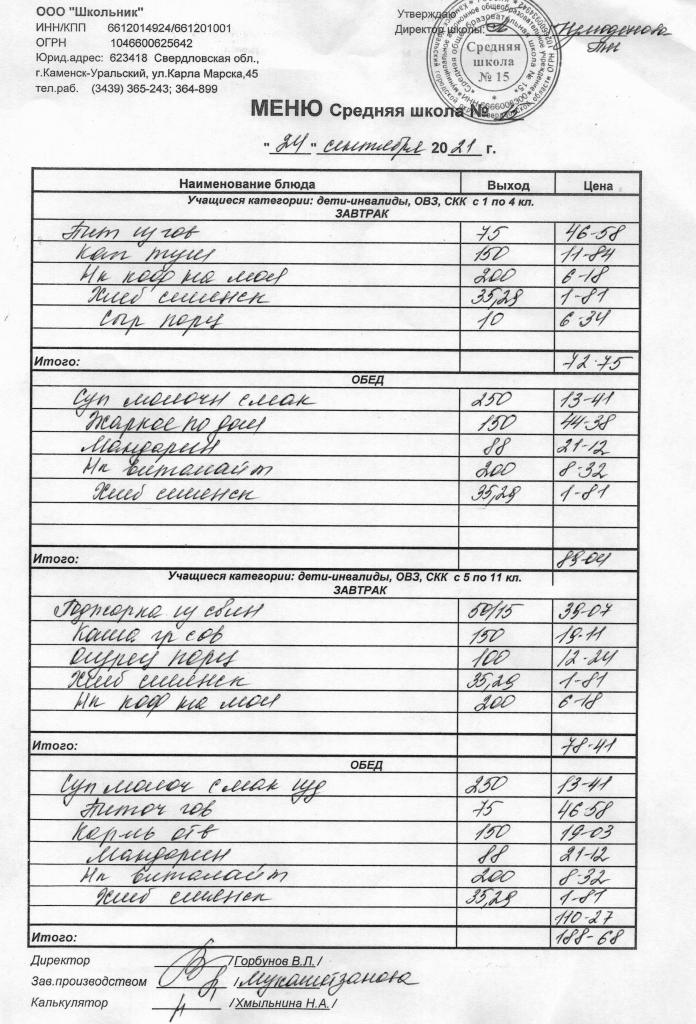 ООО "Школьник"
ИНН/КПП 6612014924/661201001
ОГРН 1046600625642
Юрид.адрес: 623418 Свердловская обл.,
г.Каменск-Уральский, ул.Карла Марска,45
тел.раб. (3439) 365-243; 364-899
Утверждаю
Директор школы:
Средняя
школа
№ 15
МЕНЮ Средняя школа №
"24" сентября 2021 г.
Наименование блюда Выход Цена
Учащиеся категории: дети-инвалиды, ОВЗ, СКК с 1 по 4 кл.
ЗАВТРАК
гов 75 46-58
Кап туш 150 11-84
Нк коф на мол 200 6-18
Хлеб 35,29 1-81
Сыр порц 10 6-34
Итого: 72-75
ОБЕД
Суп молочн с мак 250 13-41
Жаркое по дом 150 44-38
Мандарин 88 21-12
Нк виталайт 200 8-32
Хлеб 35,29 1-81
Итого: 89-04
Учащиеся категории: дети-инвалиды, ОВЗ, СКК с 5 по 11 кл.
ЗАВТРАК
Поджарка из свин 50/15 39-07
Каша гр 150 19-11
Огурец порц 100 12-24
Хлеб 35,29 1-81
Нк коф на мол 200 6-18
Итого: 78-41
ОБЕД
Суп молоч с мак 250 13-41
гов 75 46-58
Карт отв 150 19-03
Мандарин 88 21-12
Нк виталайт 200 8-32
Хлеб 35,29 1-81
110-27
Итого: 188-68
Директор /Горбунов В.Л. /
Зав.производством /
Калькулятор /Хмыльнина Н.А. /